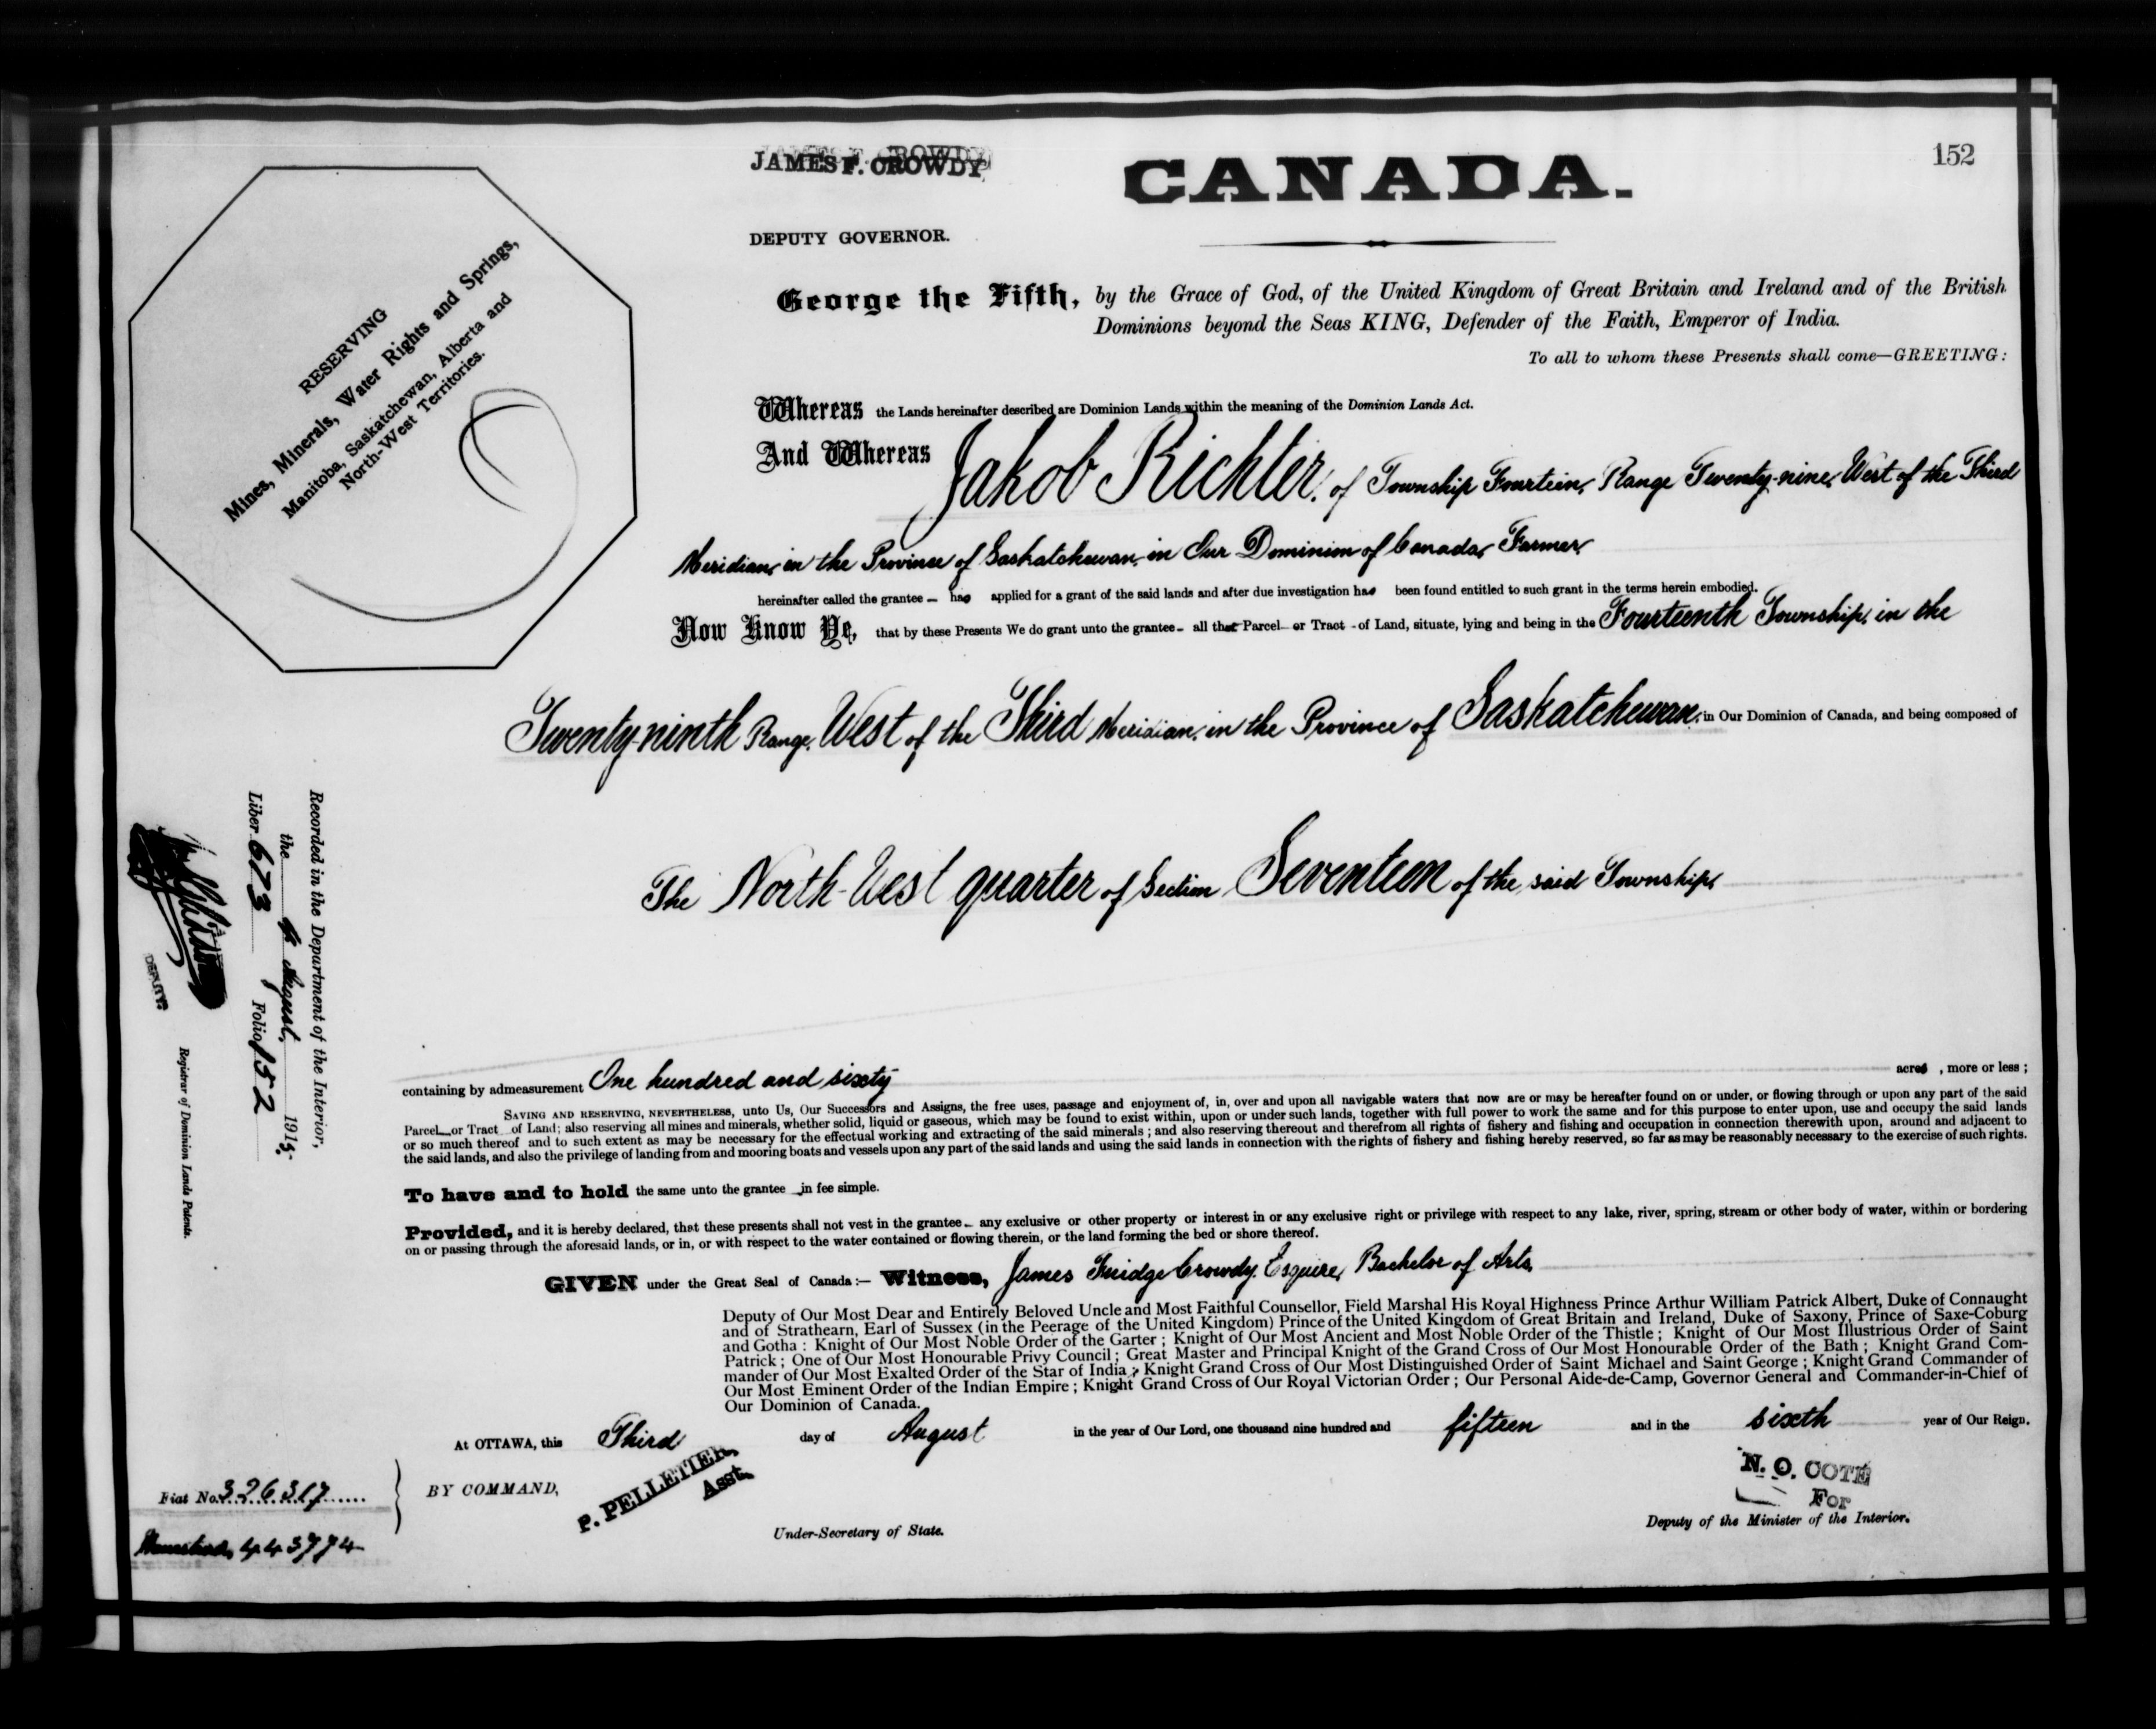 152
JAMES F. CROWDY
CANADA.
DEPUTY GOVERNOR.
RESERVING
Mines, Minerals, Water Rights and Springs,
Manitoba, Saskatchewan, Alberta and
North-West Territories.
George the Fifth, by the Grace of God, of the United Kingdom of Great Britain and Ireland and of the British
Dominions beyond the Seas KING, Defender of the Faith, Emperor of India.
To all to whom these Presents shall come—GREETING:
Whereas the Lands hereinafter described are Dominion Lands within the meaning of the Dominion Lands Act.
And Whereas Jakob Richter, of Township Fourteen, Range Twenty-nine, West of the Third
Meridian, in the Province of Saskatchewan, in Our Dominion of Canada, Farmer,
hereinafter called the grantee – has applied for a grant of the said lands and after due investigation has been found entitled to such grant in the terms herein embodied.
Now Know Ye, that by these Presents We do grant unto the grantee – all that Parcel or Tract of Land, situate, lying and being in the Fourteenth Township, in the
Twenty-ninth Range, West of the Third Meridian, in the Province of Saskatchewan, in Our Dominion of Canada, and being composed of
The North-West quarter of Section Seventeen of the said Township,
containing by admeasurement One hundred and sixty acres , more or less ;
SAVING AND RESERVING, NEVERTHELESS, unto Us, Our Successors and Assigns, the free uses, passage and enjoyment of, in, over and upon all navigable waters that now are or may be hereafter found on or under, or flowing through or upon any part of the said
Parcel or Tract of Land; also reserving all mines and minerals, whether solid, liquid or gaseous, which may be found to exist within, upon or under such lands, together with full power to work the same and for this purpose to enter upon, use and occupy the said lands
or so much thereof and to such extent as may be necessary for the effectual working and extracting of the said minerals ; and also reserving thereout and therefrom all rights of fishery and fishing and occupation in connection therewith upon, around and adjacent to
the said lands, and also the privilege of landing from and mooring boats and vessels upon any part of the said lands and using the said lands in connection with the rights of fishery and fishing hereby reserved, so far as may be reasonably necessary to the exercise of such rights.
To have and to hold the same unto the grantee in fee simple.
Provided, and it is hereby declared, that these presents shall not vest in the grantee – any exclusive or other property or interest in or any exclusive right or privilege with respect to any lake, river, spring, stream or other body of water, within or bordering
on or passing through the aforesaid lands, or in, or with respect to the water contained or flowing therein, or the land forming the bed or shore thereof.
GIVEN under the Great Seal of Canada :— Witness, James Fuidge Crowdy, Esquire, Bachelor of Arts,
Deputy of Our Most Dear and Entirely Beloved Uncle and Most Faithful Counsellor, Field Marshal His Royal Highness Prince Arthur William Patrick Albert, Duke of Connaught
and of Strathearn, Earl of Sussex (in the Peerage of the United Kingdom) Prince of the United Kingdom of Great Britain and Ireland, Duke of Saxony, Prince of Saxe-Coburg
and Gotha : Knight of Our Most Noble Order of the Garter ; Knight of Our Most Ancient and Most Noble Order of the Thistle ; Knight of Our Most Illustrious Order of Saint
Patrick ; One of Our Most Honourable Privy Council ; Great Master and Principal Knight of the Grand Cross of Our Most Honourable Order of the Bath ; Knight Grand Com-
mander of Our Most Exalted Order of the Star of India ; Knight Grand Cross of Our Most Distinguished Order of Saint Michael and Saint George ; Knight Grand Commander of
Our Most Eminent Order of the Indian Empire ; Knight Grand Cross of Our Royal Victorian Order ; Our Personal Aide-de-Camp, Governor General and Commander-in-Chief of
Our Dominion of Canada.
At OTTAWA, this Third day of August in the year of Our Lord, one thousand nine hundred and fifteen and in the sixth year of Our Reign.
BY COMMAND,
P. PELLETIER,
Asst.
Under-Secretary of State.
N. O. COTE
For
Deputy of the Minister of the Interior.
Fiat No. 326317
Homestead, 443774
Recorded in the Department of the Interior,
the August, 1915.
Liber 673 Folio 152
DEPUTY
Registrar of Dominion Lands Patents.